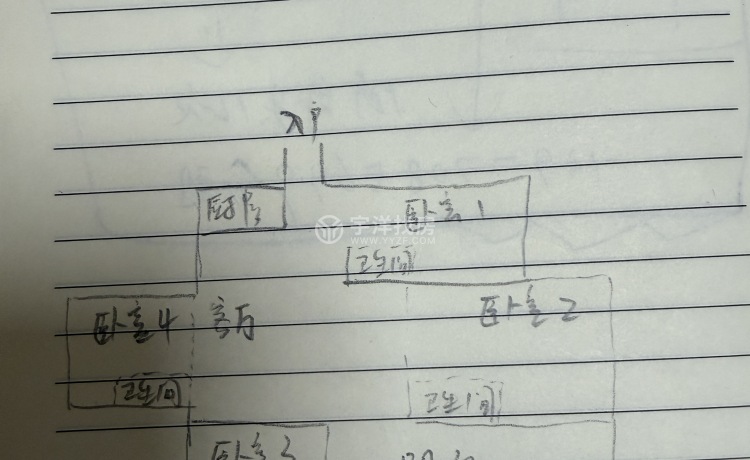 入户
厨房
卧室1
宇洋找房
WWW.YYZF.COM
卫生间
卧室4
客厅
卧室2
卫生间
卫生间
卧室3